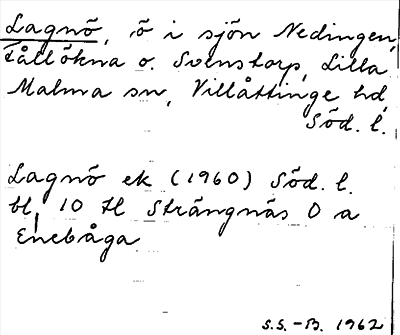 Lagnö, ö i sjön Nedingen,
Tållökna o. Svenstorp, Lilla
Malma sn, Villåttinge hd,
Söd. l.
Lagnö ek (1960) Söd. l.
bl, 10 H Strängnäs O a
Enebåga
S.S. - B. 1962